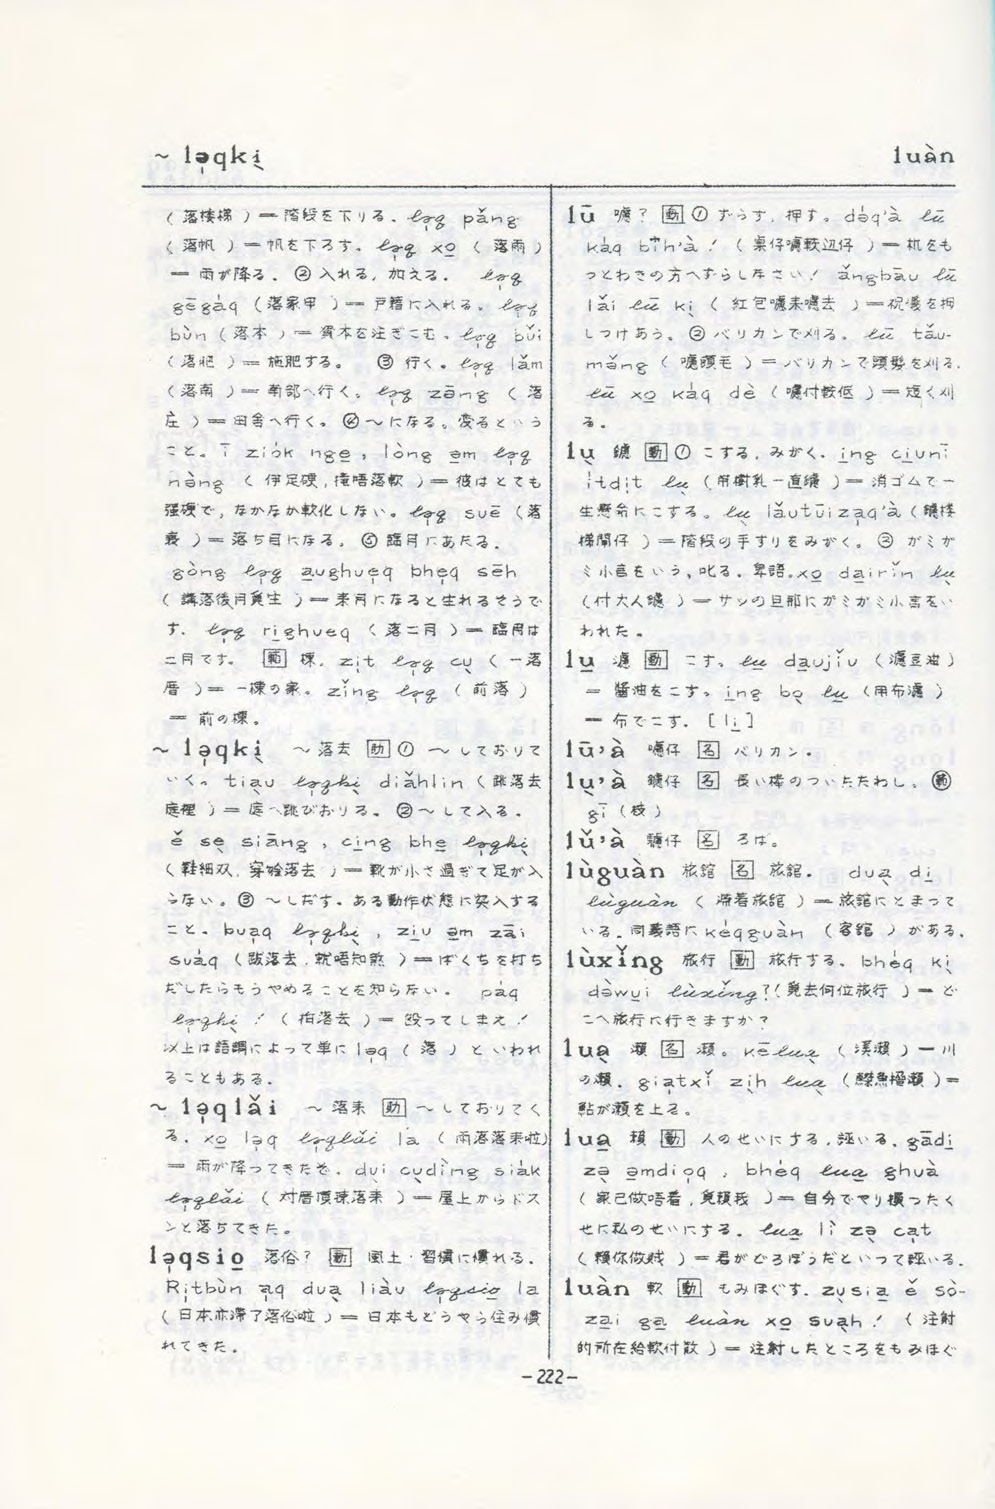 ~ lə̣qkị̀
luàn
( 落楼梯 ) = 階段を下りる. lə̣q pǎng
( 落帆 ) = 帆を下ろす. lə̣q xo̱ ( 落雨 )
= 雨が降る. ② 入れる, 加える. lə̣q
gēgáq ( 落家甲 ) = 戸籍に入れる. lə̣q
bùn ( 落本 ) = 資本を注ぎこむ. lə̣q bǔi
( 落肥 ) = 施肥する. ③ 行く. lə̣q lǎm
( 落南 ) = 南部へ行く. lə̣q zāng ( 落
庄 ) = 田舎へ行く. ④ ~になる. 変るという
こと. ī ziók nge̱, lòng ə̱m lə̣q
nàng ( 伊足硬, 攏唔落軟 ) = 彼はとても
強硬で, なかなか軟化しない. lə̣q suē ( 落
衰 ) = 落ち目になる. ⑤ 臨月にあたる.
gòng lə̣q a̱ughue̱q bheq sēh
( 講落後月覓生 ) = 来月になると生れるそうで
す. lə̣q ri̱ghueq ( 落二月 ) = 臨月は
二月です. 範 棟. zi̱t lə̣q cụ ( 一落
厝 ) = 一棟の家. zǐng lə̣q ( 前落 )
= 前の棟.
~ lə̣qkị ~落去 動 ① ~しておりて
いく. tiạu lə̣qkị diǎhlin ( 跳落去
庭裡 ) = 庭へ跳びおりる. ② ~して入る.
ě sẹ siāng, ci̱ng bhe̱ lə̣qkị
( 鞋細双, 穿𣍐落去 ) = 靴が小さ過ぎて足が入
らない. ③ ~しだす. ある動作状態に突入する
こと. bua̱q lə̣qkị, zi̱u ə̱m zāi
suáq ( 跋落去, 就唔知煞 ) = ばくちを打ち
だしたらもうやめることを知らない. páq
lə̣qkị ! ( 拍落去 ) = 殴ってしまえ!
以上は語調によって単に lə̣q ( 落 ) といわれ
ることもある.
~ lə̣qlǎi ~落来 動 ~しておりてく
る. xo̱ lə̣q lə̣qlǎi la ( 雨落落来啦)
= 雨が降ってきたぞ. dụi cụdìng siák
lə̣qlǎi ( 対厝頂捒落来 ) = 屋上からドス
ンと落ちてきた.
lə̣qsio̱ 落俗? 動 風土・習慣に慣れる.
Ri̱tbùn a̱q dua̱ liàu lə̣qsio̱ la
( 日本亦滞了落俗啦 ) = 日本もどうやら住み慣
れてきた.
lū 𢲸? 動 ① ずらす, 押す. də́q'à lū
káq bǐh'à ! ( 桌仔𢲸較辺仔 ) = 机をも
つとわきの方へずらしなさい! ǎngbāu lū
lǎi lū kị ( 紅包𢲸来𢲸去 ) = 祝儀を押
しつけあう. ② バリカンで刈る. lū tǎu-
mǎng ( 𢲸頭毛 ) = バリカンで頭髪を刈る.
lū xo̱ káq dè ( 𢲸付較低 ) = 短く刈
る.
lụ 鑢 動 ① こする, みがく. i̱ng ciunī
ìtdi̱t lụ ( 用樹乳一直鑢 ) = 消ゴムで一
生懸命にこする. lụ lǎutūizaq'à ( 鑢楼
梯閘仔 ) = 階段の手すりをみがく. ② がミが
ミ小言をいう, 叱る. 卑語. xo̱ da̱irǐn lụ
( 付大人鑢 ) = サツの旦那にガミガミ小言をい
われた.
lu̱ 濾 動 こす. lu̱ da̱ujǐu ( 濾豆油 )
= 醤油をこす. i̱ng bọ lu̱ ( 用布濾 )
= 布でこす. [ li̱ ]
lū'à 𢲸仔 名 バリカン.
lụ'à 鑢仔 名 長い棒のついたたわし. 範
gī ( 枝 )
lǔ'à 驢仔 名 ろば.
lùguàn 旅館 名 旅館. dụa di̱
lùguàn ( 滞着旅館 ) = 旅館にとまって
いる. 同義語に kéqguàn ( 客館 ) がある.
lùxǐng 旅行 動 旅行する. bhéq kị
də̀wụi lùxǐng? ( 覓去何位旅行 ) = ど
こへ旅行に行きますか?
lua̱ 瀬 名 瀬. kēlua̱ ( 渓瀬 ) = 川
の瀬. gia̱txǐ zi̱h lua̱ ( 魚 瀬 ) =
鮎が瀬を上る.
lua̱ 頼 動 人のせいにする, 誣いる. gādi̱
zə̣ ə̱mdiọq, bhéq lua̱ ghuà
( 家己做唔着, 覓頼我 ) = 自分でやり損ったく
せに私のせいにする. lua̱ lì zə̣ ca̱t
( 頼你做賊 ) = 君がどろぼうだといって誣いる.
luàn 軟 動 もみほぐす. zụsia̱ ě sò-
za̱i ga̱ luàn xo̱ suạh ! ( 注射
的所在給軟付散 ) = 注射したところをもみほぐ
-222-